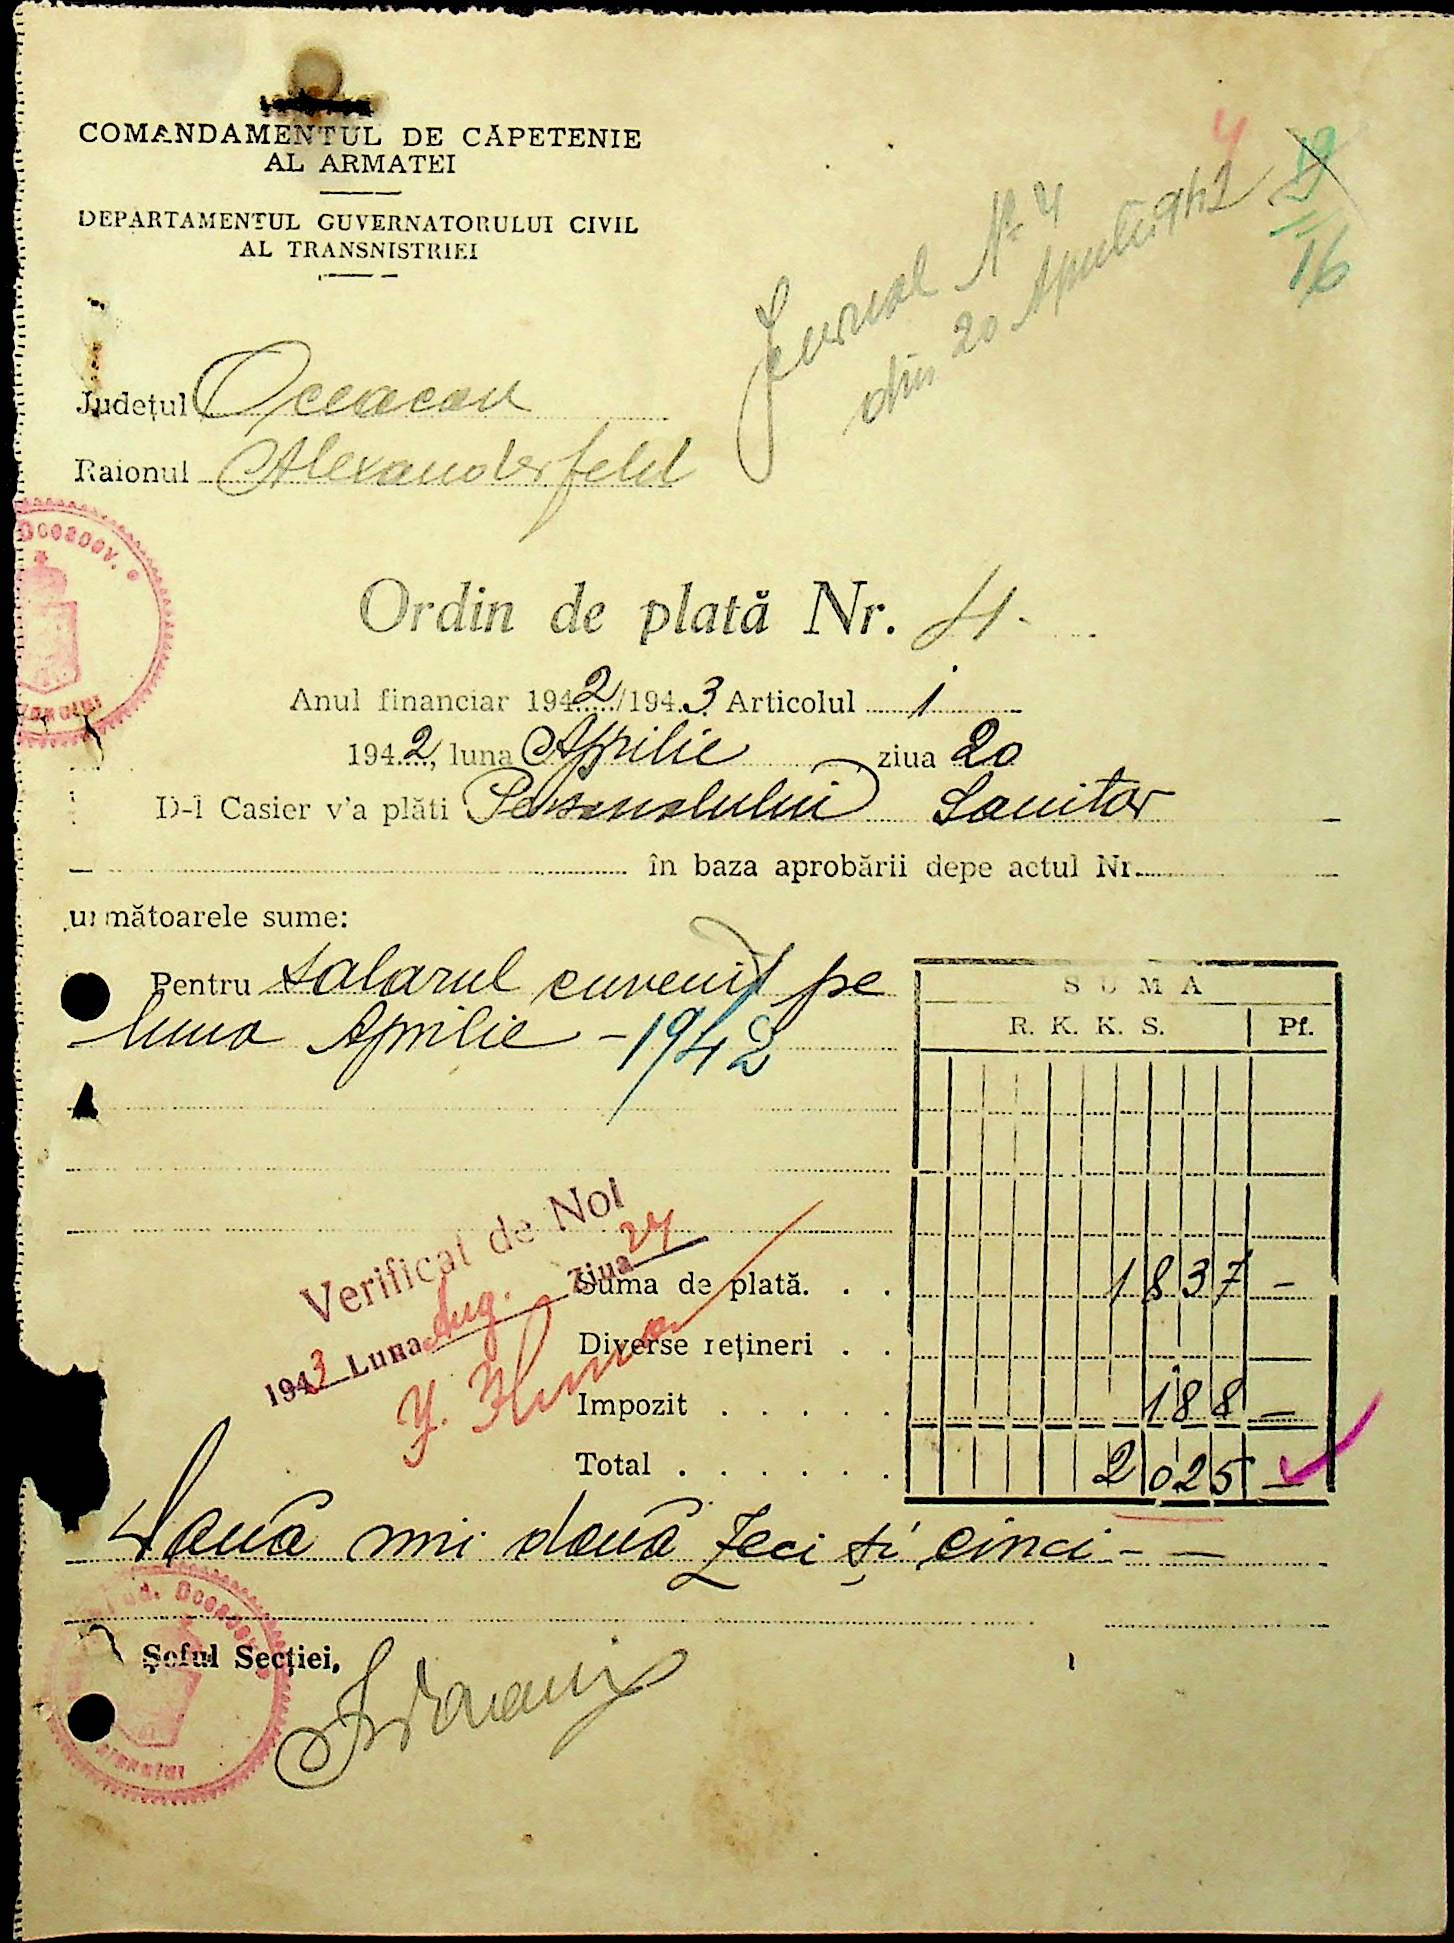 COMANDAMENTUL DE CĂPETENIE
AL ARMATEI
DEPARTAMENTUL GUVERNATORULUI CIVIL
AL TRANSNISTRIEI
4
16
Jurnal No 4
din 20 Aprilie 1942
Județul Oceacov
Raionul Alexanderfeld
Ordin de plată Nr. 4.
Anul financiar 1942/1943 Articolul 1
1942, luna Aprilie ziua 20
D-l Casier v'a plăti Personalului Sanitar
în baza aprobării depe actul Nr.
următoarele sume:
Pentru salarul cuvenit pe
luna Aprilie - 1942
SUMA
R. K. K. S. Pf.
Verificat de Noi
1943 Luna Aug. Ziua 27
Suma de plată. . . 1837 —
Diverse rețineri . .
Impozit . . . . . 188 —
Total . . . . . . 2025 —
Două mii două zeci și cinci - —
Șeful Secției,